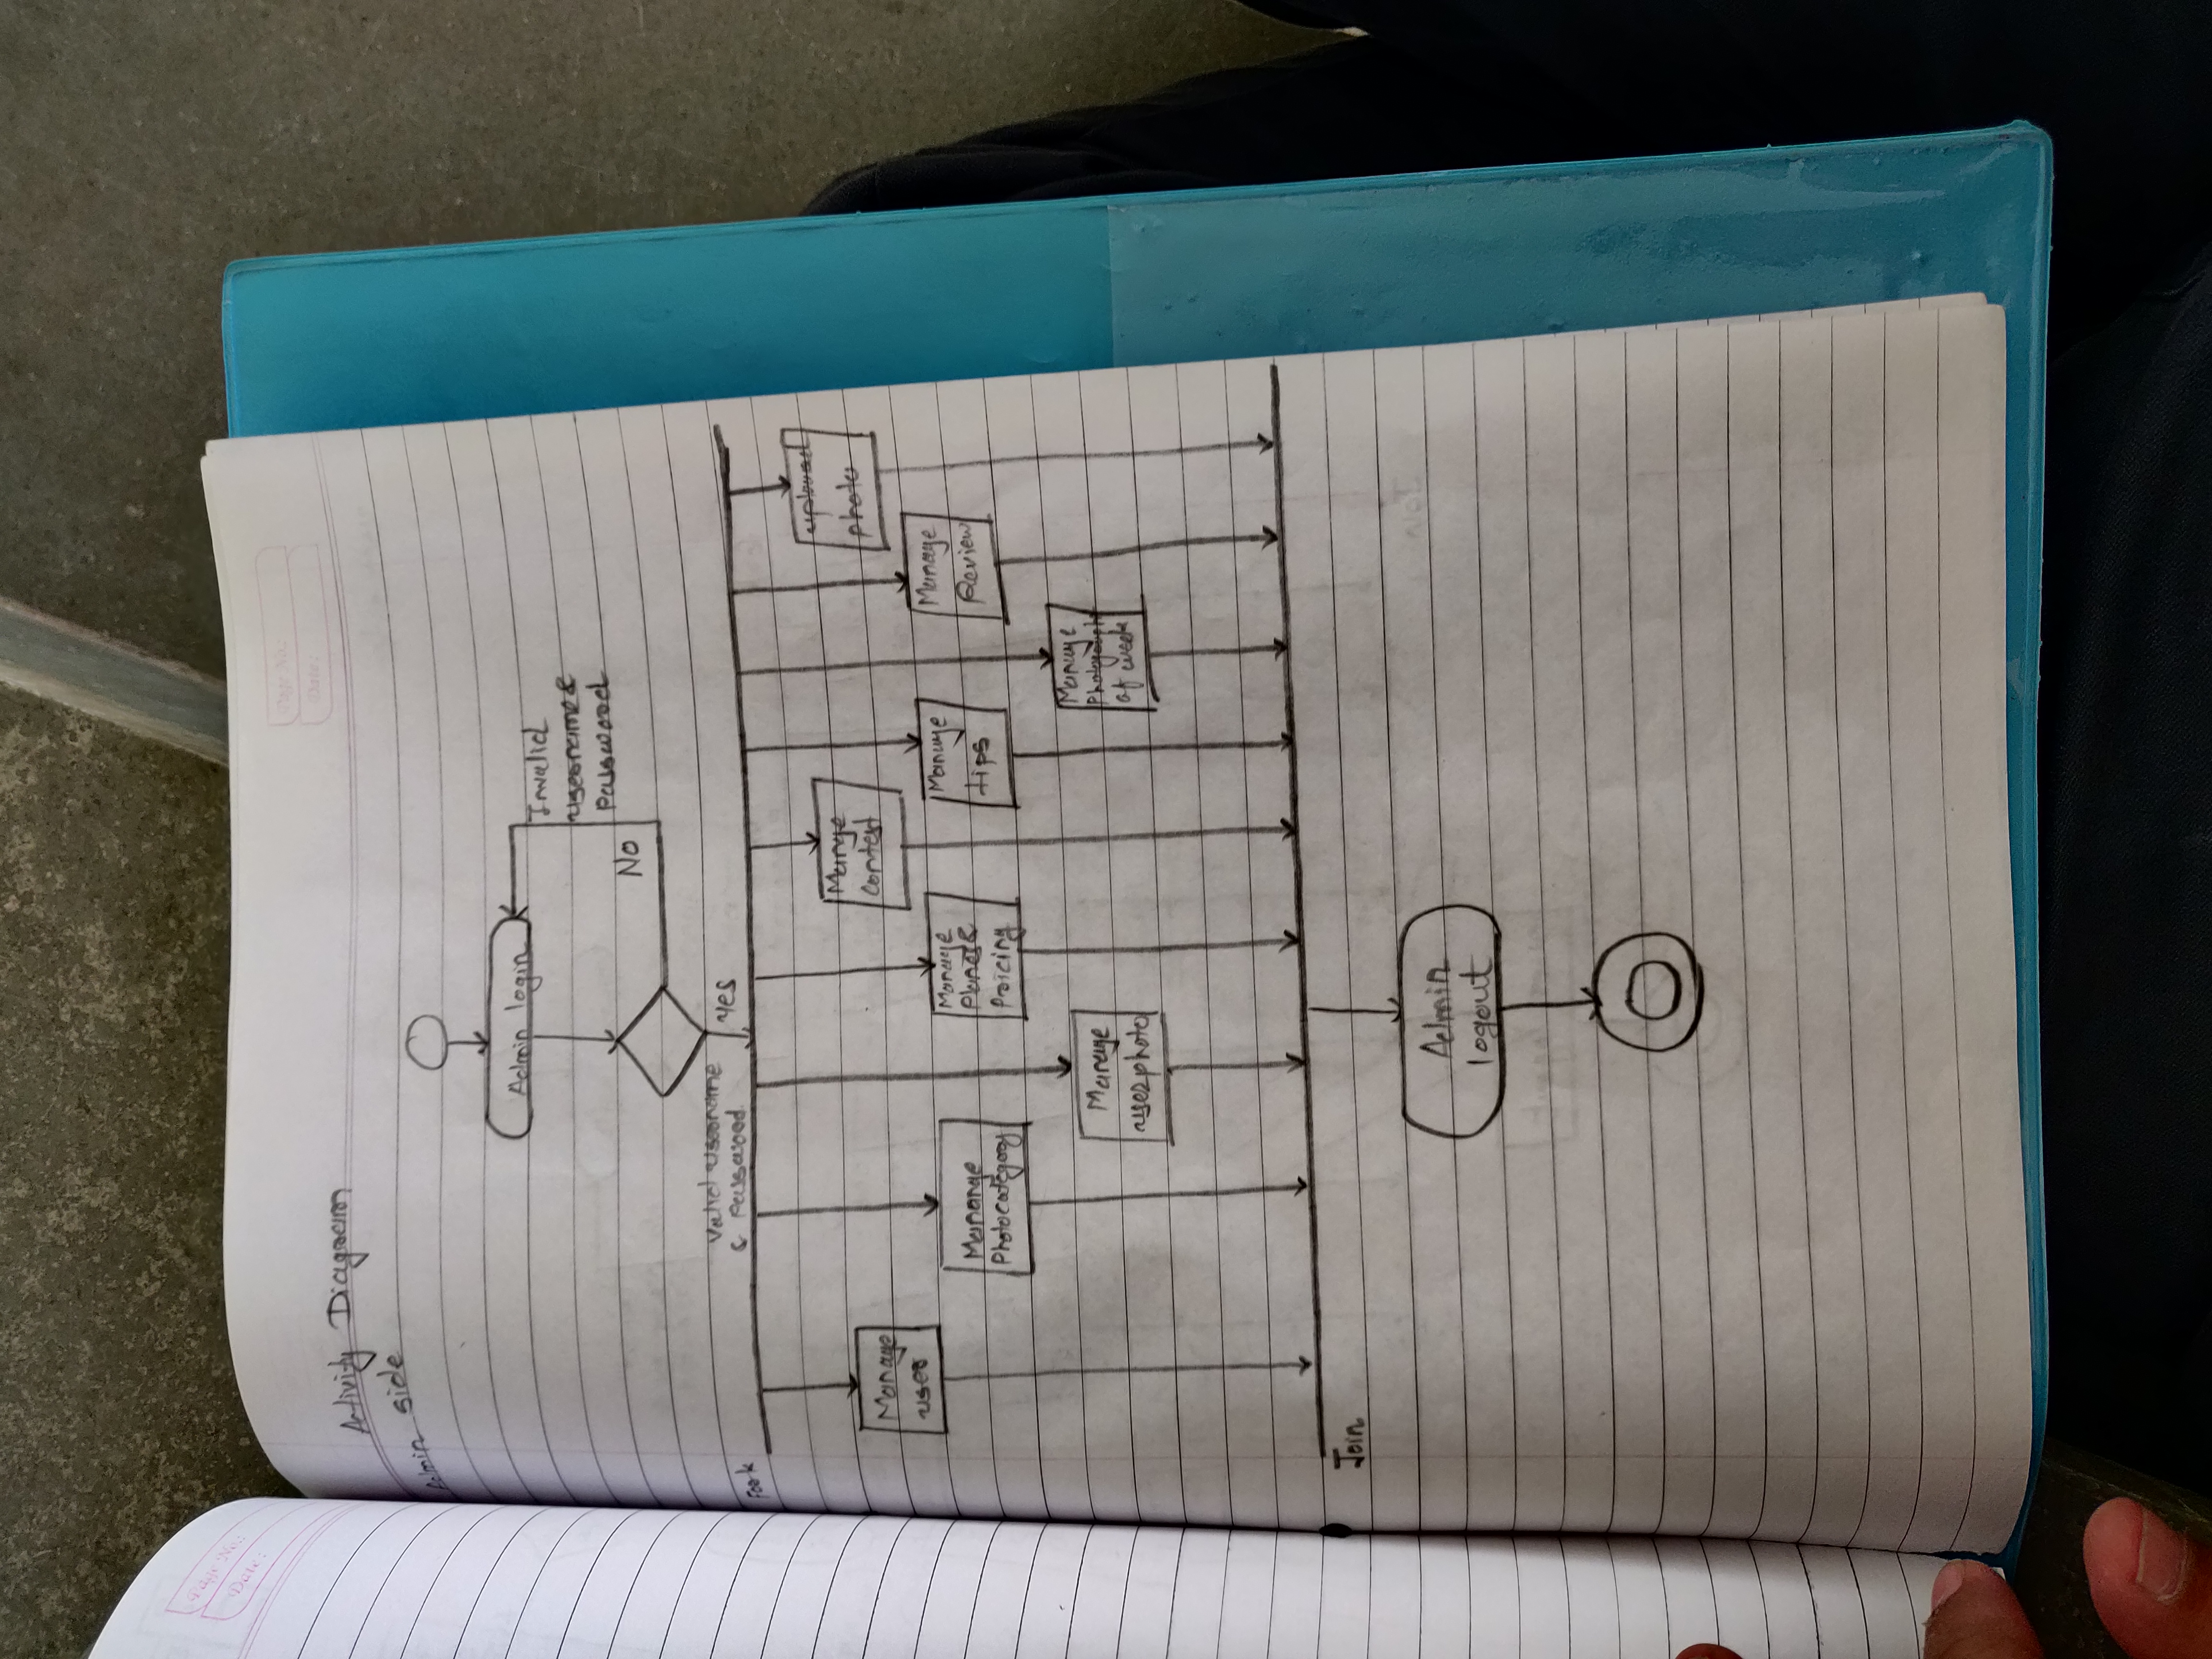 Page No.:
Date:
Page No.:
Date:
Activity Diagram
Admin side
Admin login
Invalid
username &
Password
No
Valid username
& Password
Yes
Fork
Manage
user
Mananage
Photocategory
Manage
userphoto
Manage
Planes &
Pricing
Mange
contest
Manage
tips
Manage
Photography
of week
Manage
Review
upload
photo
Join
Admin
logout